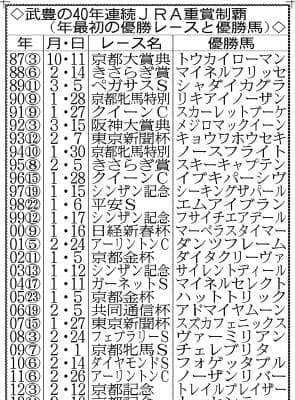 ◇武豊の40年連続ＪＲＡ重賞制覇
（年最初の優勝レースと優勝馬）◇
年 月・日 レース名 優勝馬
87③ 10・11 京都大賞典 トウカイローマン
88⑥ 2・14 きさらぎ賞 マイネルフリッセ
89⑪ 3・5 ペガサスＳ シャダイカグラ
90⑨ 1・28 京都牝馬特別 リキアイノーザン
91⑨ 1・27 クイーンＣ スカーレットブーケ
92③ 3・15 阪神大賞典 メジロマックイーン
93⑫ 2・7 東京新聞杯 キョウワホウセキ
94⑩ 1・30 京都牝馬特別 ノースフライト
95⑧ 2・5 きさらぎ賞 スキーキャプテン
96⑮ 1・28 クイーンＣ イブキパーシヴ
97⑲ 1・15 シンザン記念 シーキングザパール
98㉒ 1・6 平安Ｓ エムアイブラン
99⑫ 1・17 シンザン記念 フサイチエアデール
00⑨ 1・16 日経新春杯 マーベラスタイマー
01⑤ 2・24 アーリントンＣ ダンツフレーム
02⑪ 1・5 京都金杯 ダイタクリーヴァ
03⑬ 1・12 シンザン記念 サイレントディール
04⑰ 1・11 ガーネットＳ マイネルセレクト
05㉓ 1・5 京都金杯 ハットトリック
06⑲ 2・5 共同通信杯 アドマイヤムーン
07⑮ 1・27 東京新聞杯 スズカフェニックス
08③ 2・24 フェブラリーＳ ヴァーミリアン
09⑦ 2・1 京都牝馬Ｓ チェレブリタ
10⑥ 2・14 ダイヤモンドＳ フォゲッタブル
11⑥ 2・26 アーリントンＣ ノーザンリバー
トレイルブレイザー